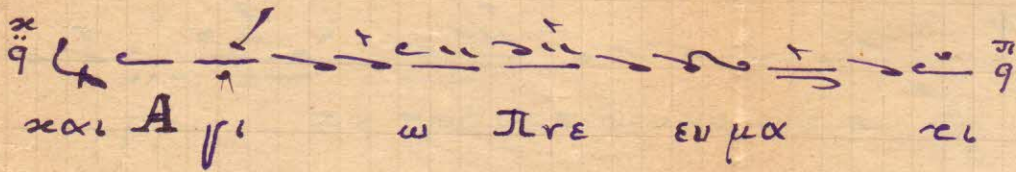 και Α γι ω Πνε ευ μα τι